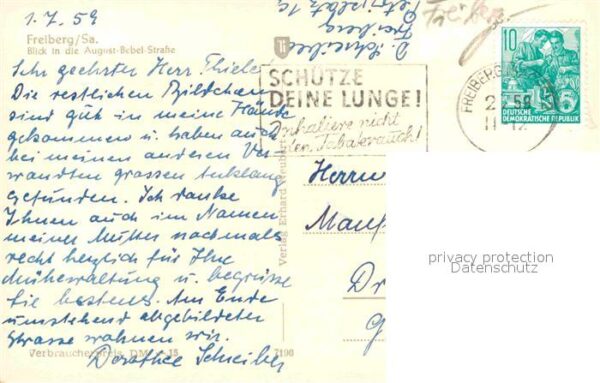 1.7.59
Freiberg/Sa.
Blick in die August-Bebel-Straße
Sehr geehrter Herr Thiele!
Die restlichen Bildchen
sind gut in meine Hände
gekommen u. haben auch
bei meinen anderen Ver-
wandten grossen Anklang
gefunden. Ich danke
Ihnen auch im Namen
meiner Mutter nochmals
recht herzlich für Ihre
Mühewaltung u. begrüsse
Sie bestens. Am Ende
umstehend abgebildeter
Strasse wohnen wir.
Dorothee Schreiber
Verbraucherpreis DM -.15
7190
Verlag Erhard Neubert
D. Schreiber
Freiberg
Freiberg
SCHÜTZE
DEINE LUNGE!
Inhaliere nicht
den Tabakrauch!
FREIBERG
2.7.59
11-12
10
DEUTSCHE
DEMOKRATISCHE REPUBLIK
Herrn
Dr
privacy protection
Datenschutz